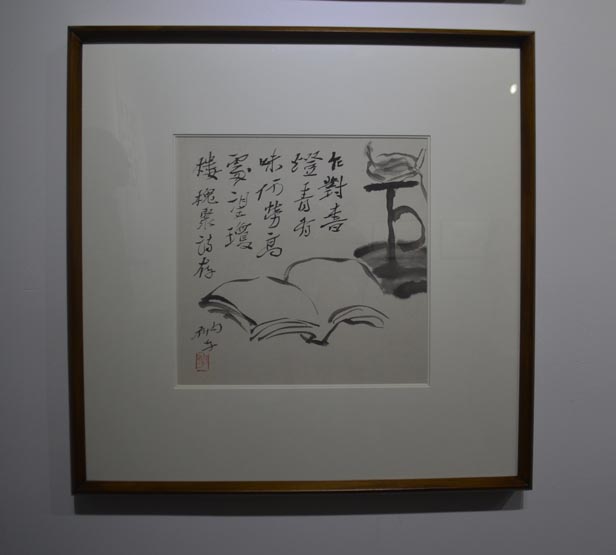 乍對書
燈青有
味何勞高
處望瓊
樓槐聚詩存